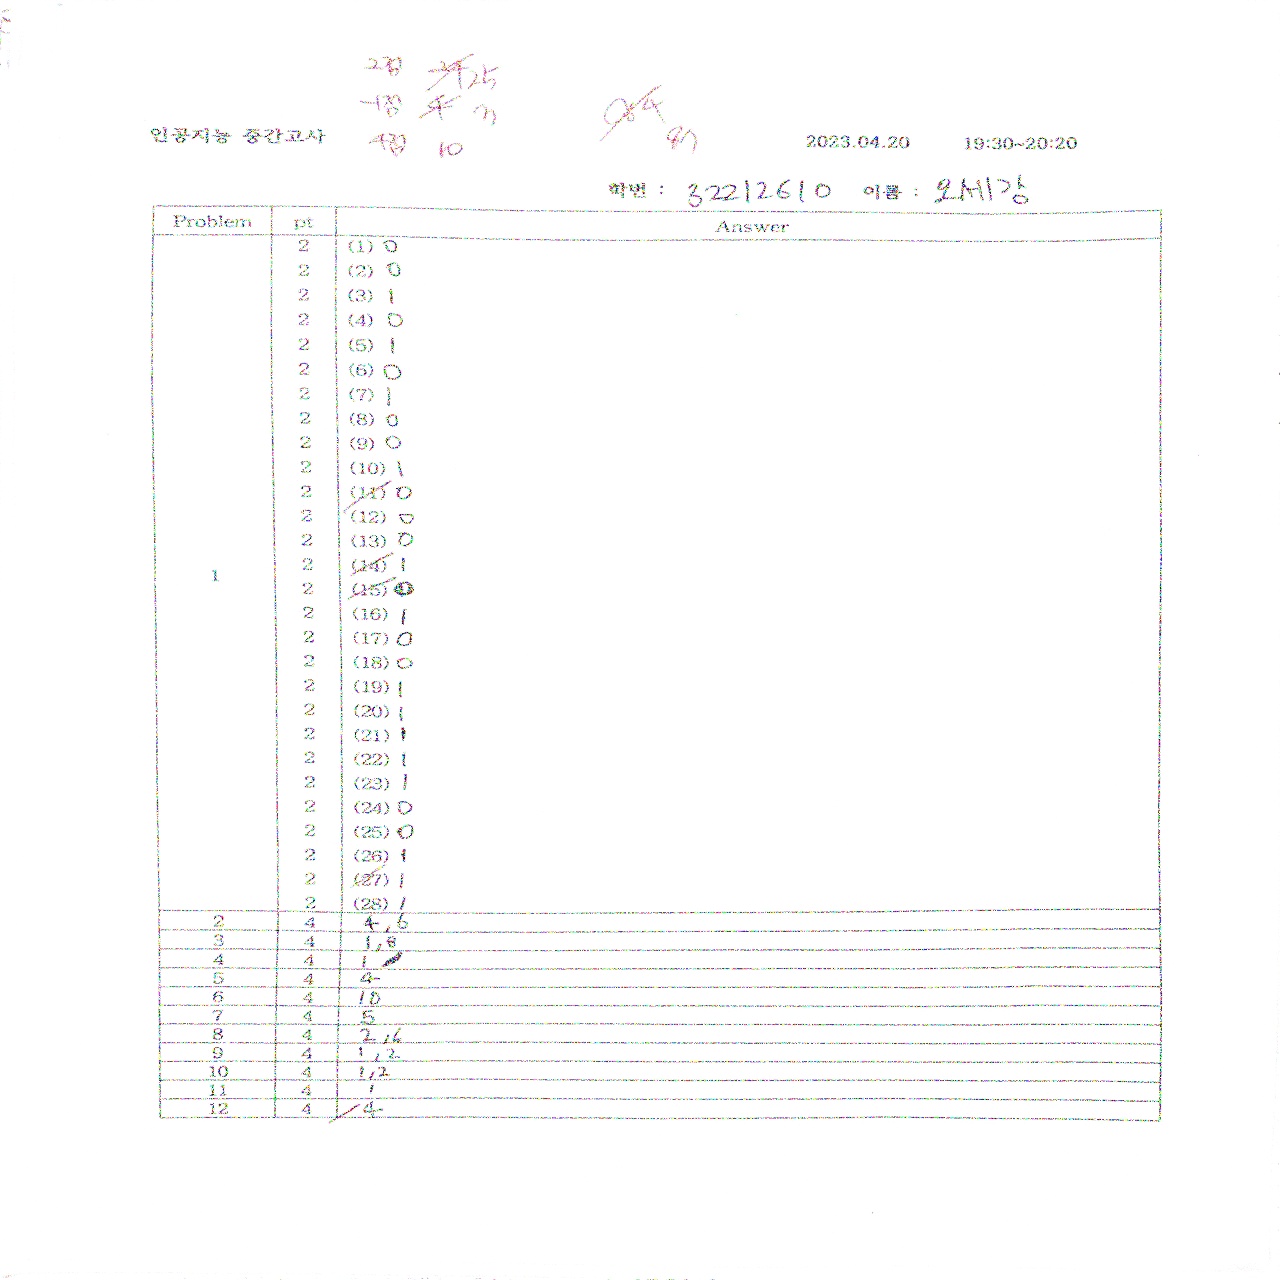 2점 25
-1점 3
4점 10
84
87
인공지능 중간고사 2023.04.20 19:30~20:20
학번 : 32212610 이름 : 오세강
Problem pt Answer
1
2 (1) 0
2 (2) 0
2 (3) 1
2 (4) 0
2 (5) 1
2 (6) 0
2 (7) 1
2 (8) 0
2 (9) 0
2 (10) 1
2 (11) 0
2 (12) 0
2 (13) 0
2 (14) 1
2 (15)
2 (16) 1
2 (17) 0
2 (18) 0
2 (19) 1
2 (20) 1
2 (21) 1
2 (22) 1
2 (23) 1
2 (24) 0
2 (25) 0
2 (26) 1
2 (27) 1
2 (28) 1
2 4 4,6
3 4 1,8
4 4 1
5 4 4
6 4 10
7 4 5
8 4 2,6
9 4 1,2
10 4 1,2
11 4 1
12 4 4